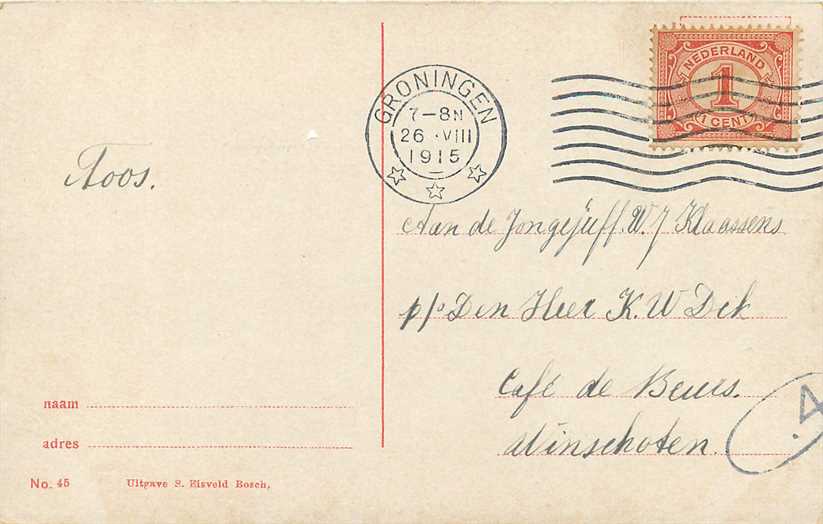 NEDERLAND
1
1 CENT
GRONINGEN
7-8N
26 ·VIII
1915
Toos.
Aan de Jongejuff. W. J Klaassens
p/o Den Heer K. W Dek
Café de Beurs.
Winschoten.
4
naam
adres
No. 45 Uitgave S. Eisveld Bosch,